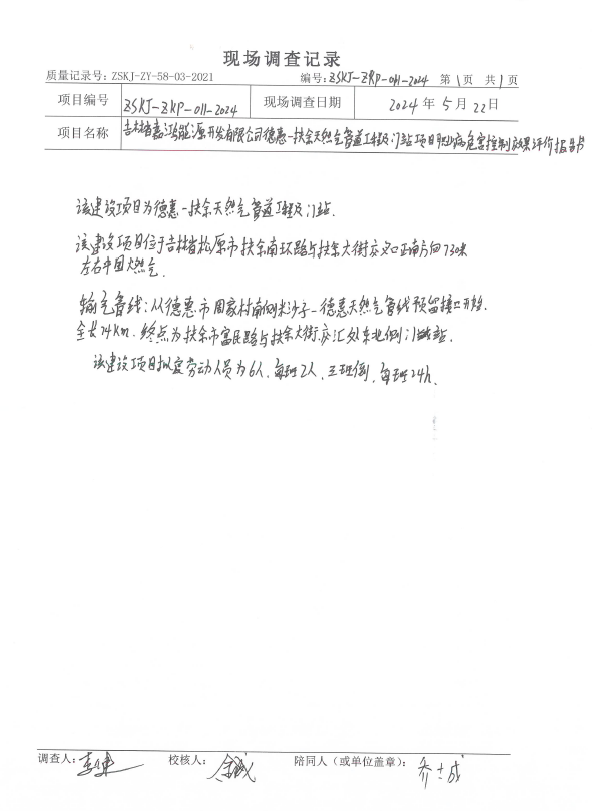 现场调查记录
质量记录号：ZSKJ-ZY-58-03-2021 编号：ZSKJ-ZKP-011-2024 第1页 共1页
项目编号 ZSKJ-ZKP-011-2024 现场调查日期 2024年5月22日
项目名称 吉林省嘉鸿能源开发有限公司德惠-扶余天然气管道工程及门站项目职业病危害控制效果评价报告书
该建设项目为德惠-扶余天然气管道工程及门站.
该建设项目位于吉林省松原市扶余南环路与扶余大街交叉口正南方向730米
左右中国燃气.
输气管线：从德惠市周家村南侧米沙子-德惠天然气管线预留接口开始.
全长74km. 终点为扶余市富民路与扶余大街交汇处东北侧门站.
该建设项目拟定劳动人员为6人, 每班2人, 三班倒, 每班24h.
调查人： 校核人： 陪同人（或单位盖章）：